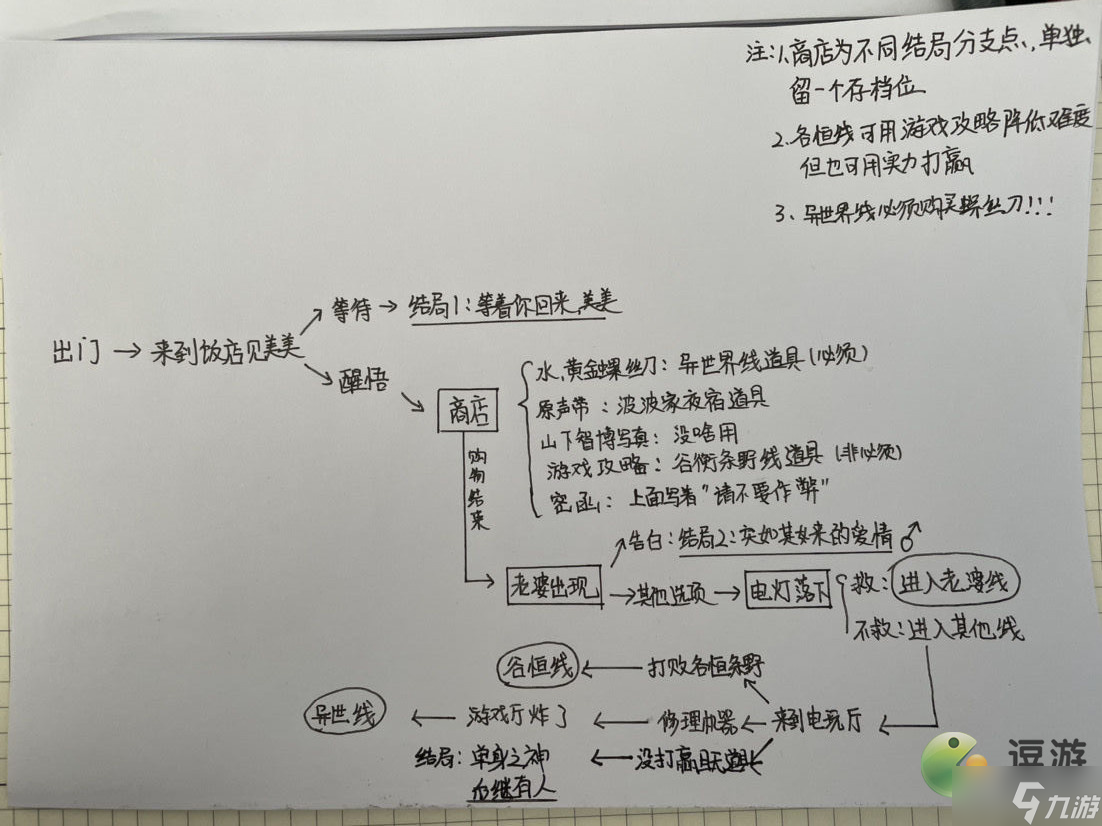 注:1、商店为不同结局分支点,单独
留一个存档位
2、谷恒线可用游戏攻略降低难度
但也可用实力打赢
3、异世界线必须购买螺丝刀!!!
出门→来到饭店见美美
等待→结局1:等着你回来,美美
醒悟
商店
水,黄金螺丝刀:异世界线道具(必须)
原声带:波波家夜宿道具
山下智博写真:没啥用
游戏攻略:谷衡条野线道具(非必须)
密函:上面写着"请不要作弊"
购物结束
老婆出现
告白:结局2:突如其女来的爱情♂
→其他选项→电灯落下
救:进入老婆线
不救:进入其他线
谷恒线←打败谷恒条野
异世线←游戏厅炸了←修理机器←来到电玩厅
结局:单身之神←没打赢且无道具
后继有人
逗游
九游